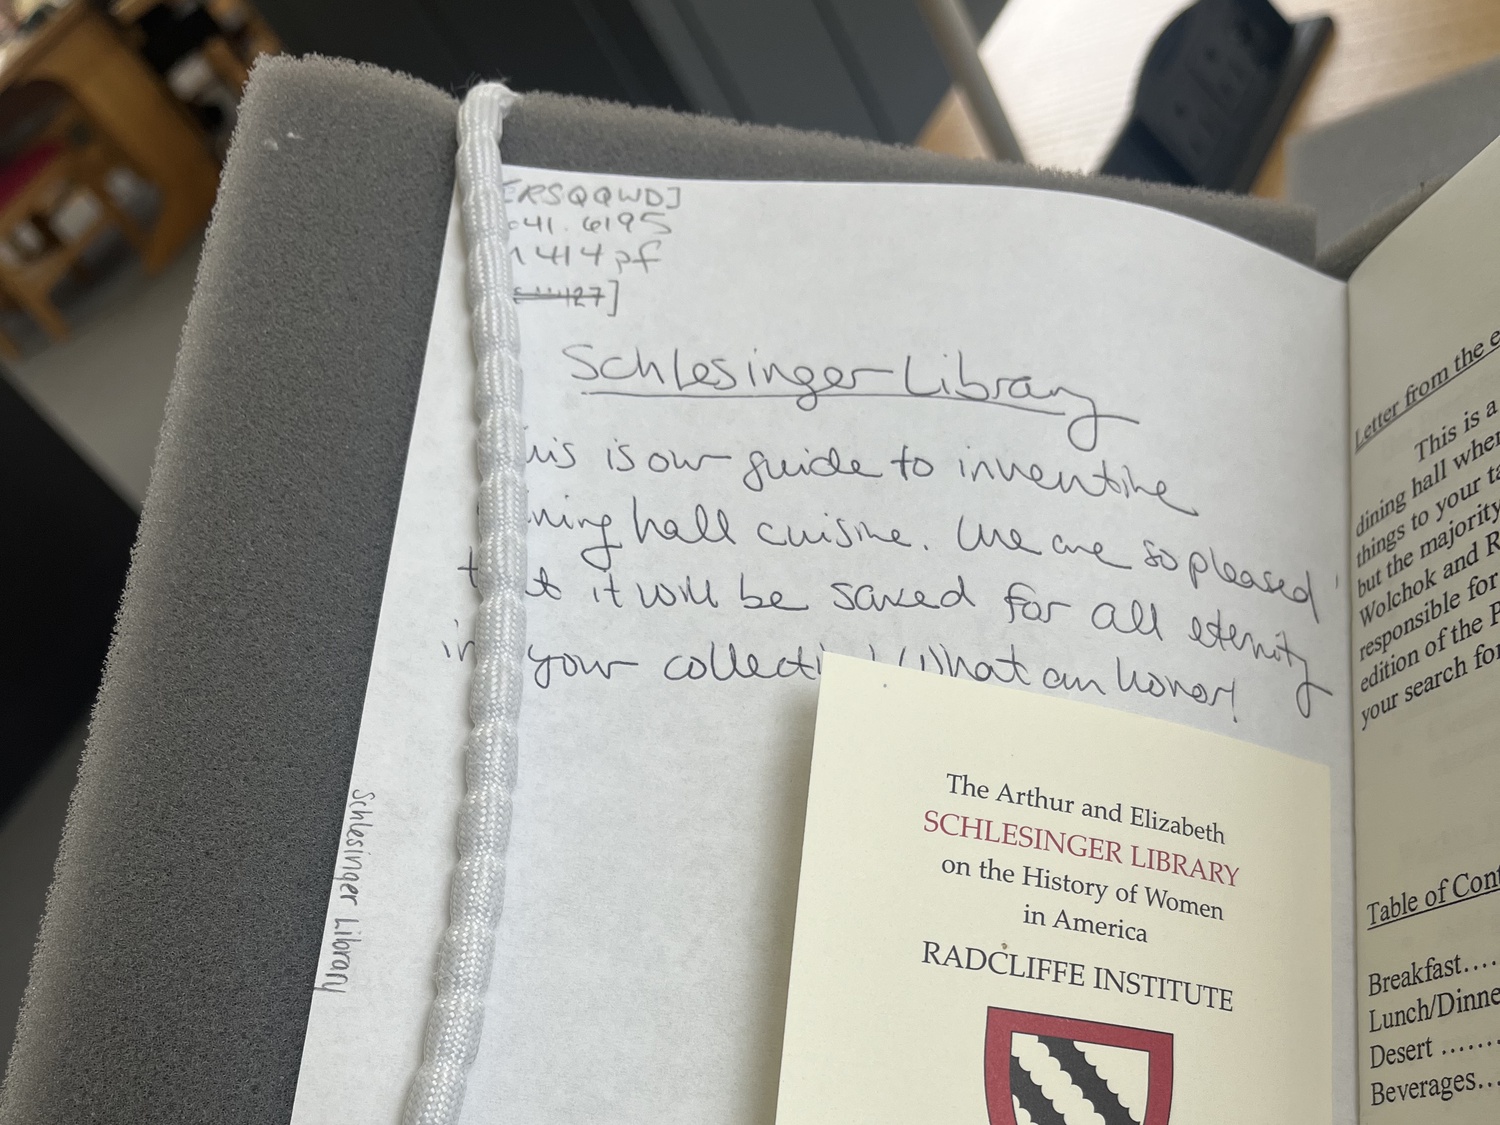 ERSQQWD]
641.6195
414pf
127]
Schlesinger Library
is is our guide to inventive
ning hall cuisine. We are so pleased
t it will be saved for all eternity
in your collecti What an honor!
Schlesinger Library
The Arthur and Elizabeth
SCHLESINGER LIBRARY
on the History of Women
in America
RADCLIFFE INSTITUTE
Letter from the e
This is a
dining hall wher
things to your ta
but the majority
Wolchok and R
responsible for
edition of the P
your search for
Table of Cont
Breakfast....
Lunch/Dinne
Desert .......
Beverages...